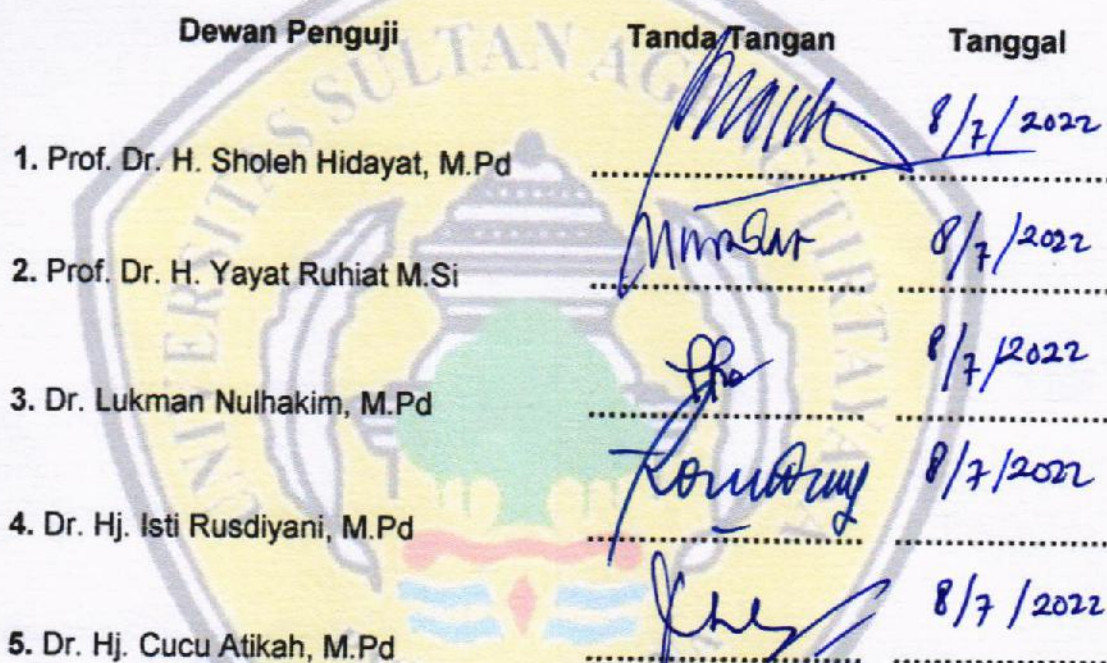 Dewan Penguji Tanda Tangan Tanggal
1. Prof. Dr. H. Sholeh Hidayat, M.Pd 8/7/2022
2. Prof. Dr. H. Yayat Ruhiat M.Si 8/7/2022
3. Dr. Lukman Nulhakim, M.Pd 8/7/2022
4. Dr. Hj. Isti Rusdiyani, M.Pd 8/7/2022
5. Dr. Hj. Cucu Atikah, M.Pd 8/7/2022
UNIVERSITAS SULTAN AGENG TIRTAYASA